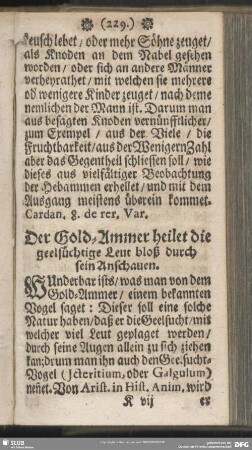 (229.)
keusch lebet / oder mehr Söhne zeuget /
als Knoden an dem Nabel gesehen
worden / oder sich an andere Männer
verheyrathet / mit welchen sie mehrere
od wenigere Kinder zeuget / nach deme
nemlichen der Mann ist. Darum man
aus besagten Knoden vernünfftlicher /
zum Exempel / aus der Viele / die
Fruchtbarkeit / aus der Wenigern Zahl
aber das Gegentheil schliessen soll / wie
dieses aus vielfältiger Beobachtung
der Hebammen erhellet / und mit dem
Ausgang meistens überein kommet.
Cardan. 8. de rer. Var.
Der Gold-Ammer heilet die
geelsüchtige Leut bloß durch
sein Anschauen.
WUnderbar ists / was man von dem
Gold-Ammer / einem bekannten
Vogel saget: Dieser soll eine solche
Natur haben / daß er die Geelsucht / mit
welcher viel Leut geplaget werden /
durch seine Augen allein zu sich ziehen
kan; drum man ihn auch den Geelsucht-
Vogel (Icteritium, oder Galgulum)
neñet. Von Arist. in Hist. Anim, wird
K vij
er
SLUB
DFG